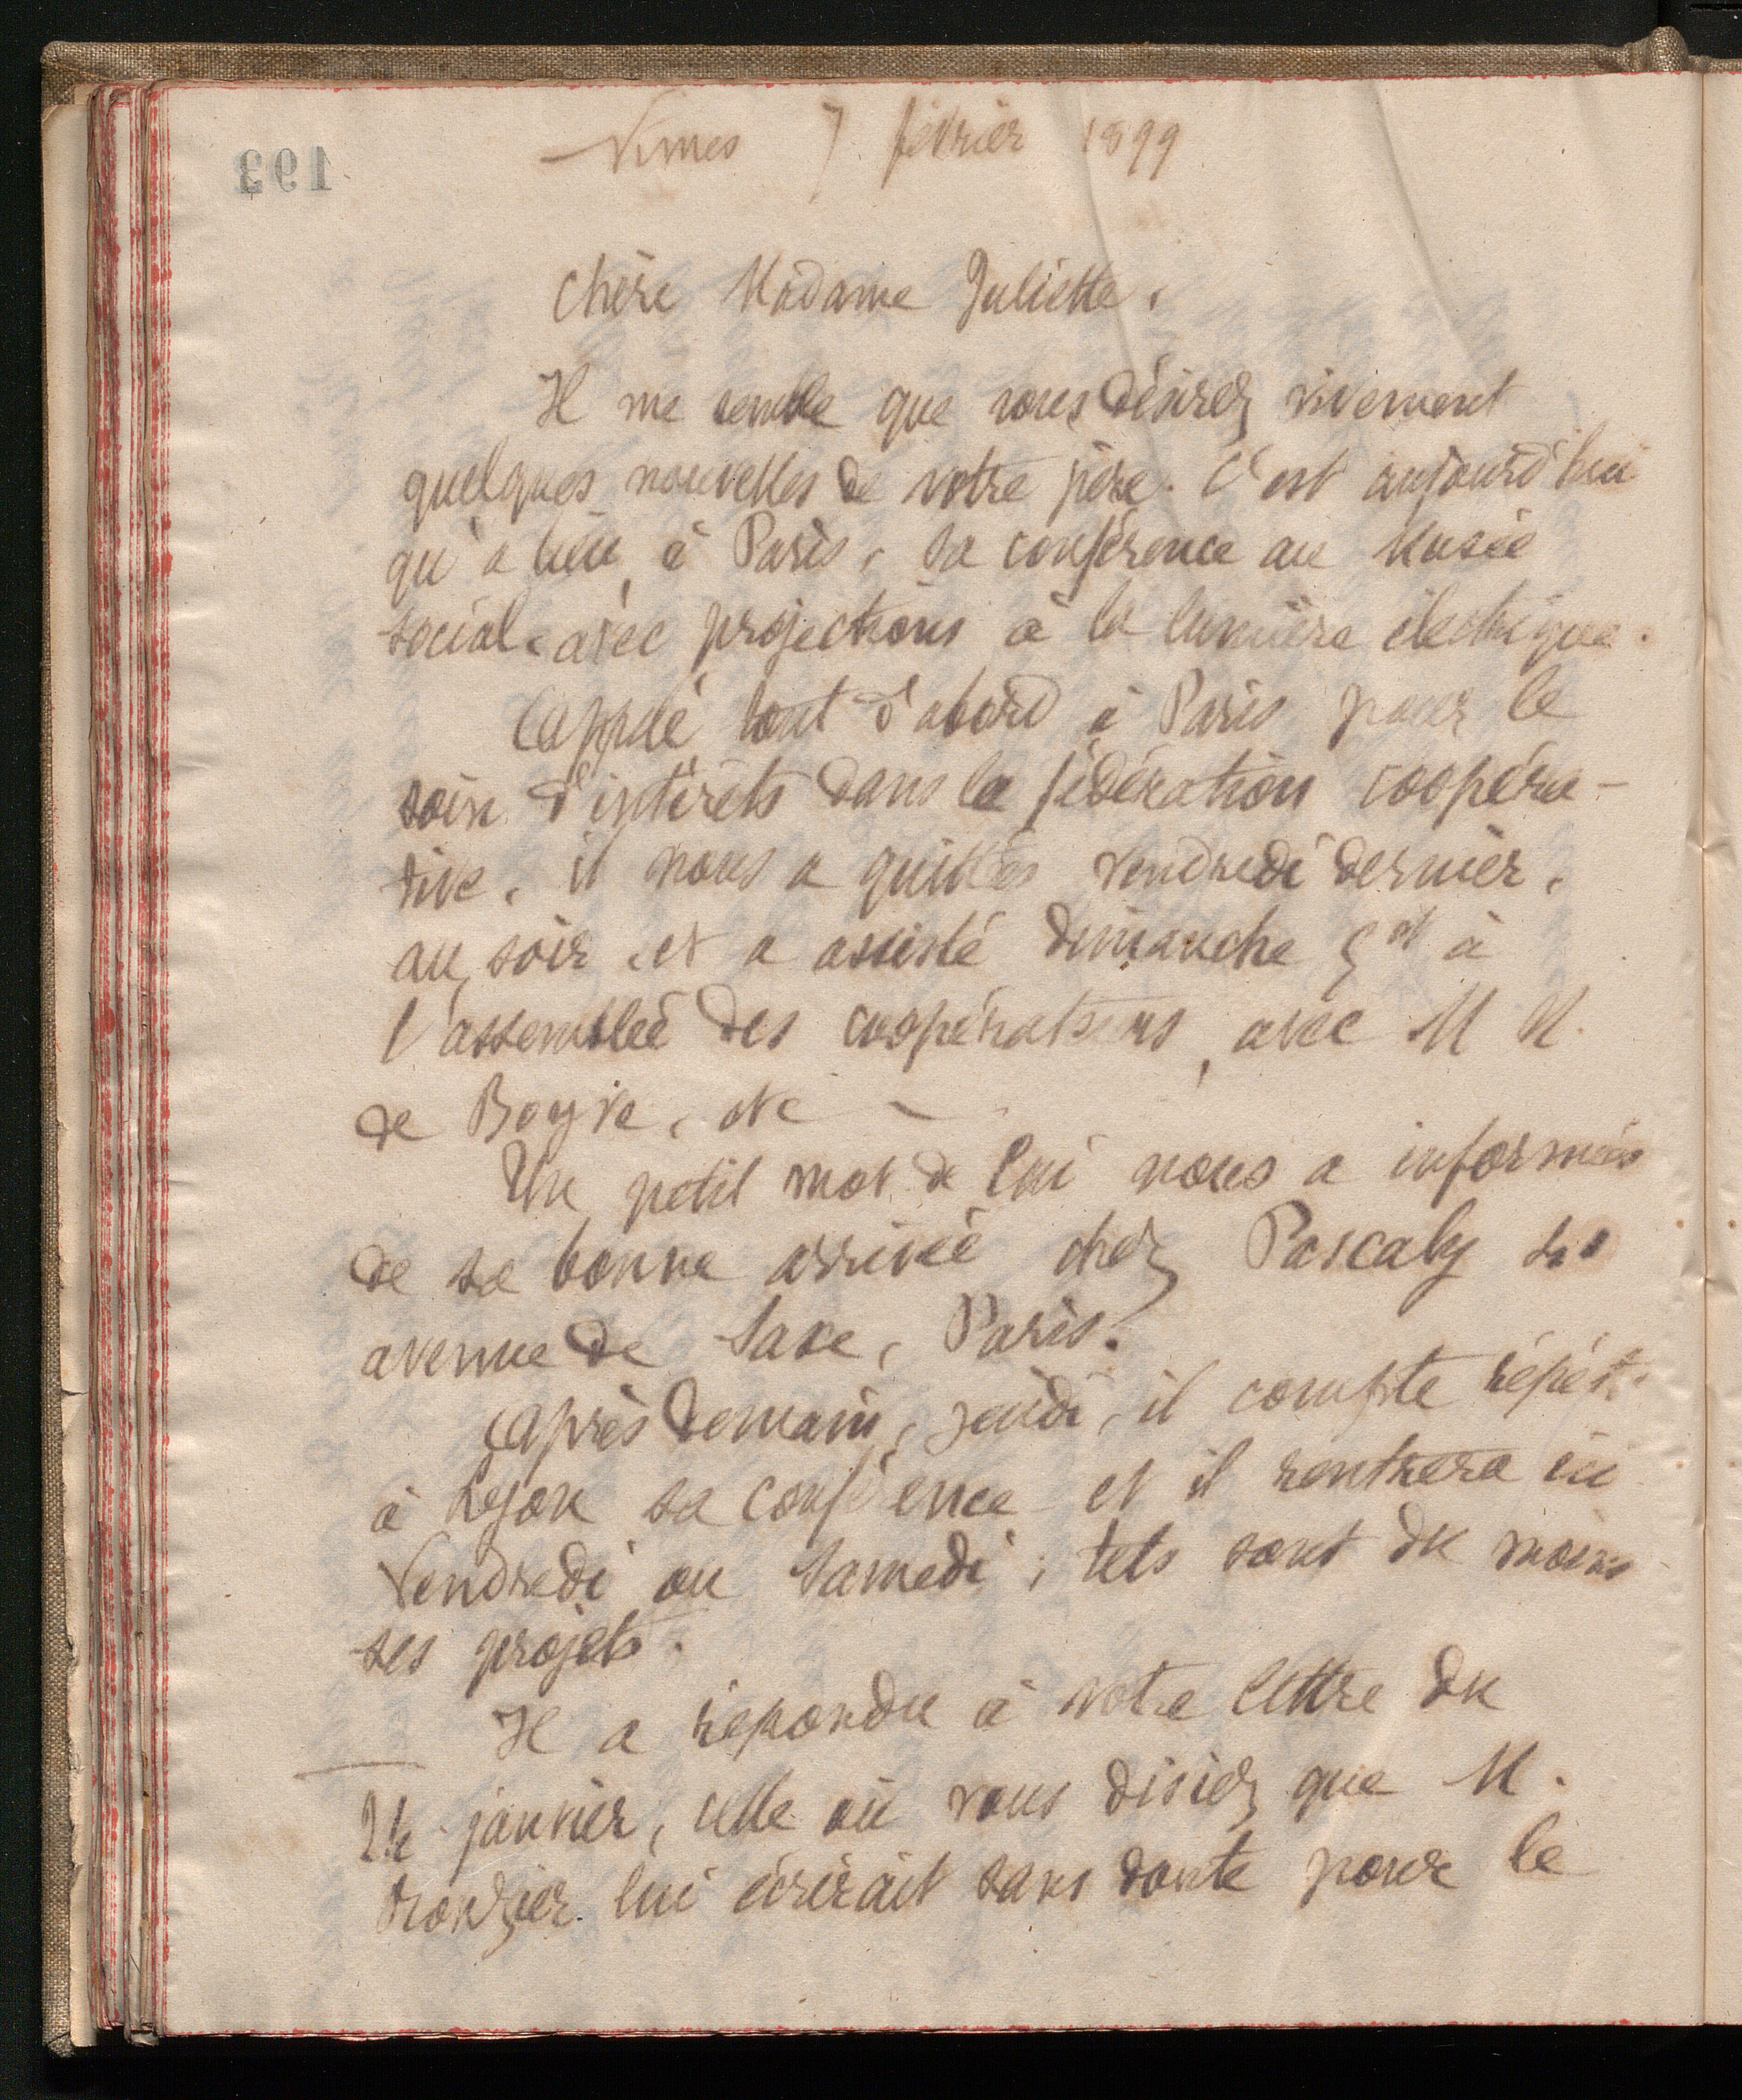 193
Nimes 7 février 1899
Chère Madame Juliette,
Il me semble que vous désirez vivement
quelques nouvelles de votre père. C'est aujourd'hui
qu'a lieu, à Paris, sa conférence au Musée
social, avec projections à la lumière électrique.
Appelé tout d'abord à Paris pour le
soin d'intérêts dans la fédération coopéra-
tive, il nous a quittés vendredi dernier,
au soir, et a assisté dimanche à
l'assemblée des coopérateurs, avec M M.
de Boyve, etc
Un petit mot de lui nous a informés
de sa bonne arrivée chez Pascaly
avenue de Saxe, Paris.
Après demain, jeudi, il compte répét.
à Lyon sa conférence et il rentrera ici
Vendredi ou Samedi ; tels sont du moins
ses projets.
Il a répondu à votre lettre du
janvier, celle où vous disiez que M.
lui écrirait sans doute pour le